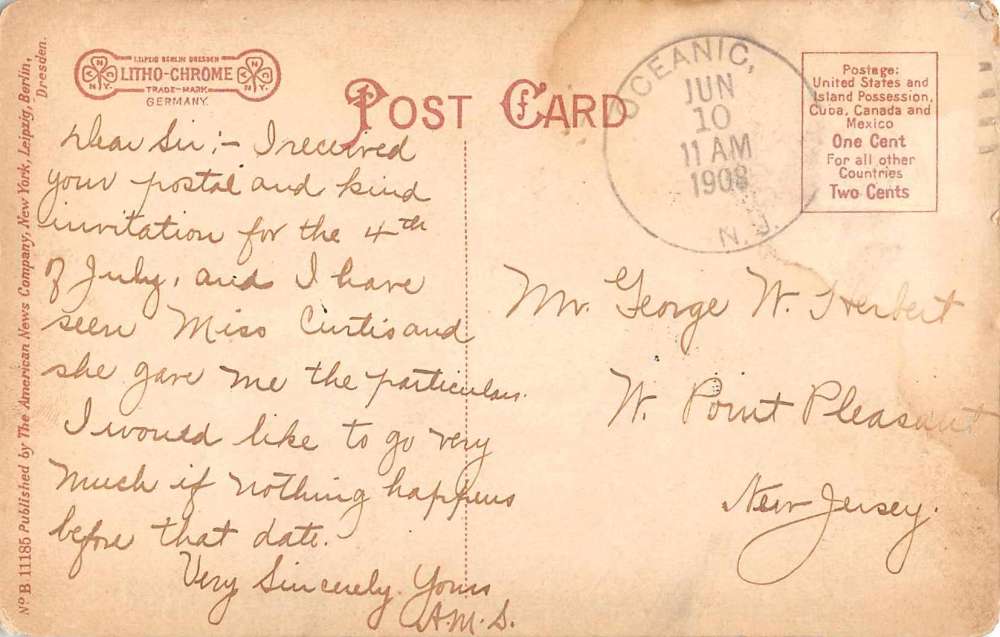 LEIPZIG BERLIN DRESDEN
LITHO-CHROME
TRADE-MARK
GERMANY.
POST CARD
OCEANIC,
JUN
10
11 AM
1908
N.J.
Postage:
United States and
Island Possession,
Cuba, Canada and
Mexico
One Cent
For all other
Countries
Two Cents
Dear Sir:- I received
your postal and kind
invitation for the 4th
of July, and I have
seen Miss Curtis and
she gave me the particulars.
I would like to go very
much if nothing happens
before that date.
Very Sincerely Yours
A.M.S.
Mr. George W. Herbert
W. Point Pleasant
New Jersey.
No B 11185 Published by The American News Company, New York, Leipzig, Berlin,
Dresden.